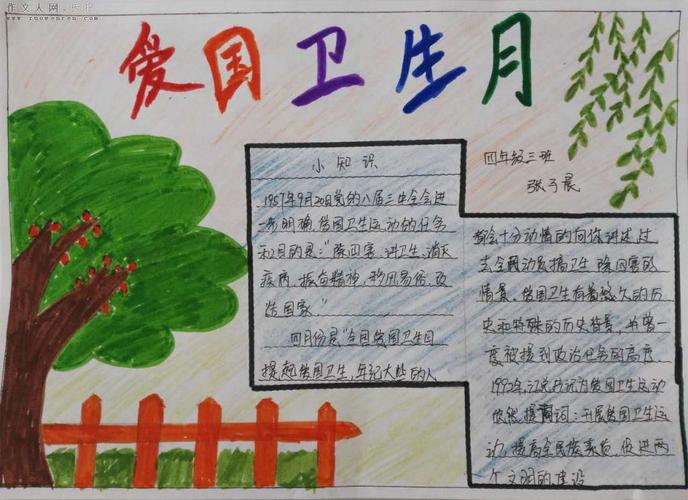 作文人网
www.zuowenren.com
爱国卫生月
四年级三班
张子晨
小知识
1957年9月20日党的八届三中全会进
一步明确爱国卫生运动的任务
和目的是：“除四害，讲卫生，消灭
疾病，振奋精神，移风易俗，改
造国家”
四月份是“全国爱国卫生月
提起爱国卫生，年纪大些的人
都会十分动情的向你讲述过
去全民动员搞卫生除四害的
情景。爱国卫生有着悠久的历
史和特殊的历史背景，并曾一
度被提到政治任务的高度
1992年，江泽民为爱国卫生运动
题词：开展爱国卫生运
动，提高全民族素质，促进两
个文明的建设